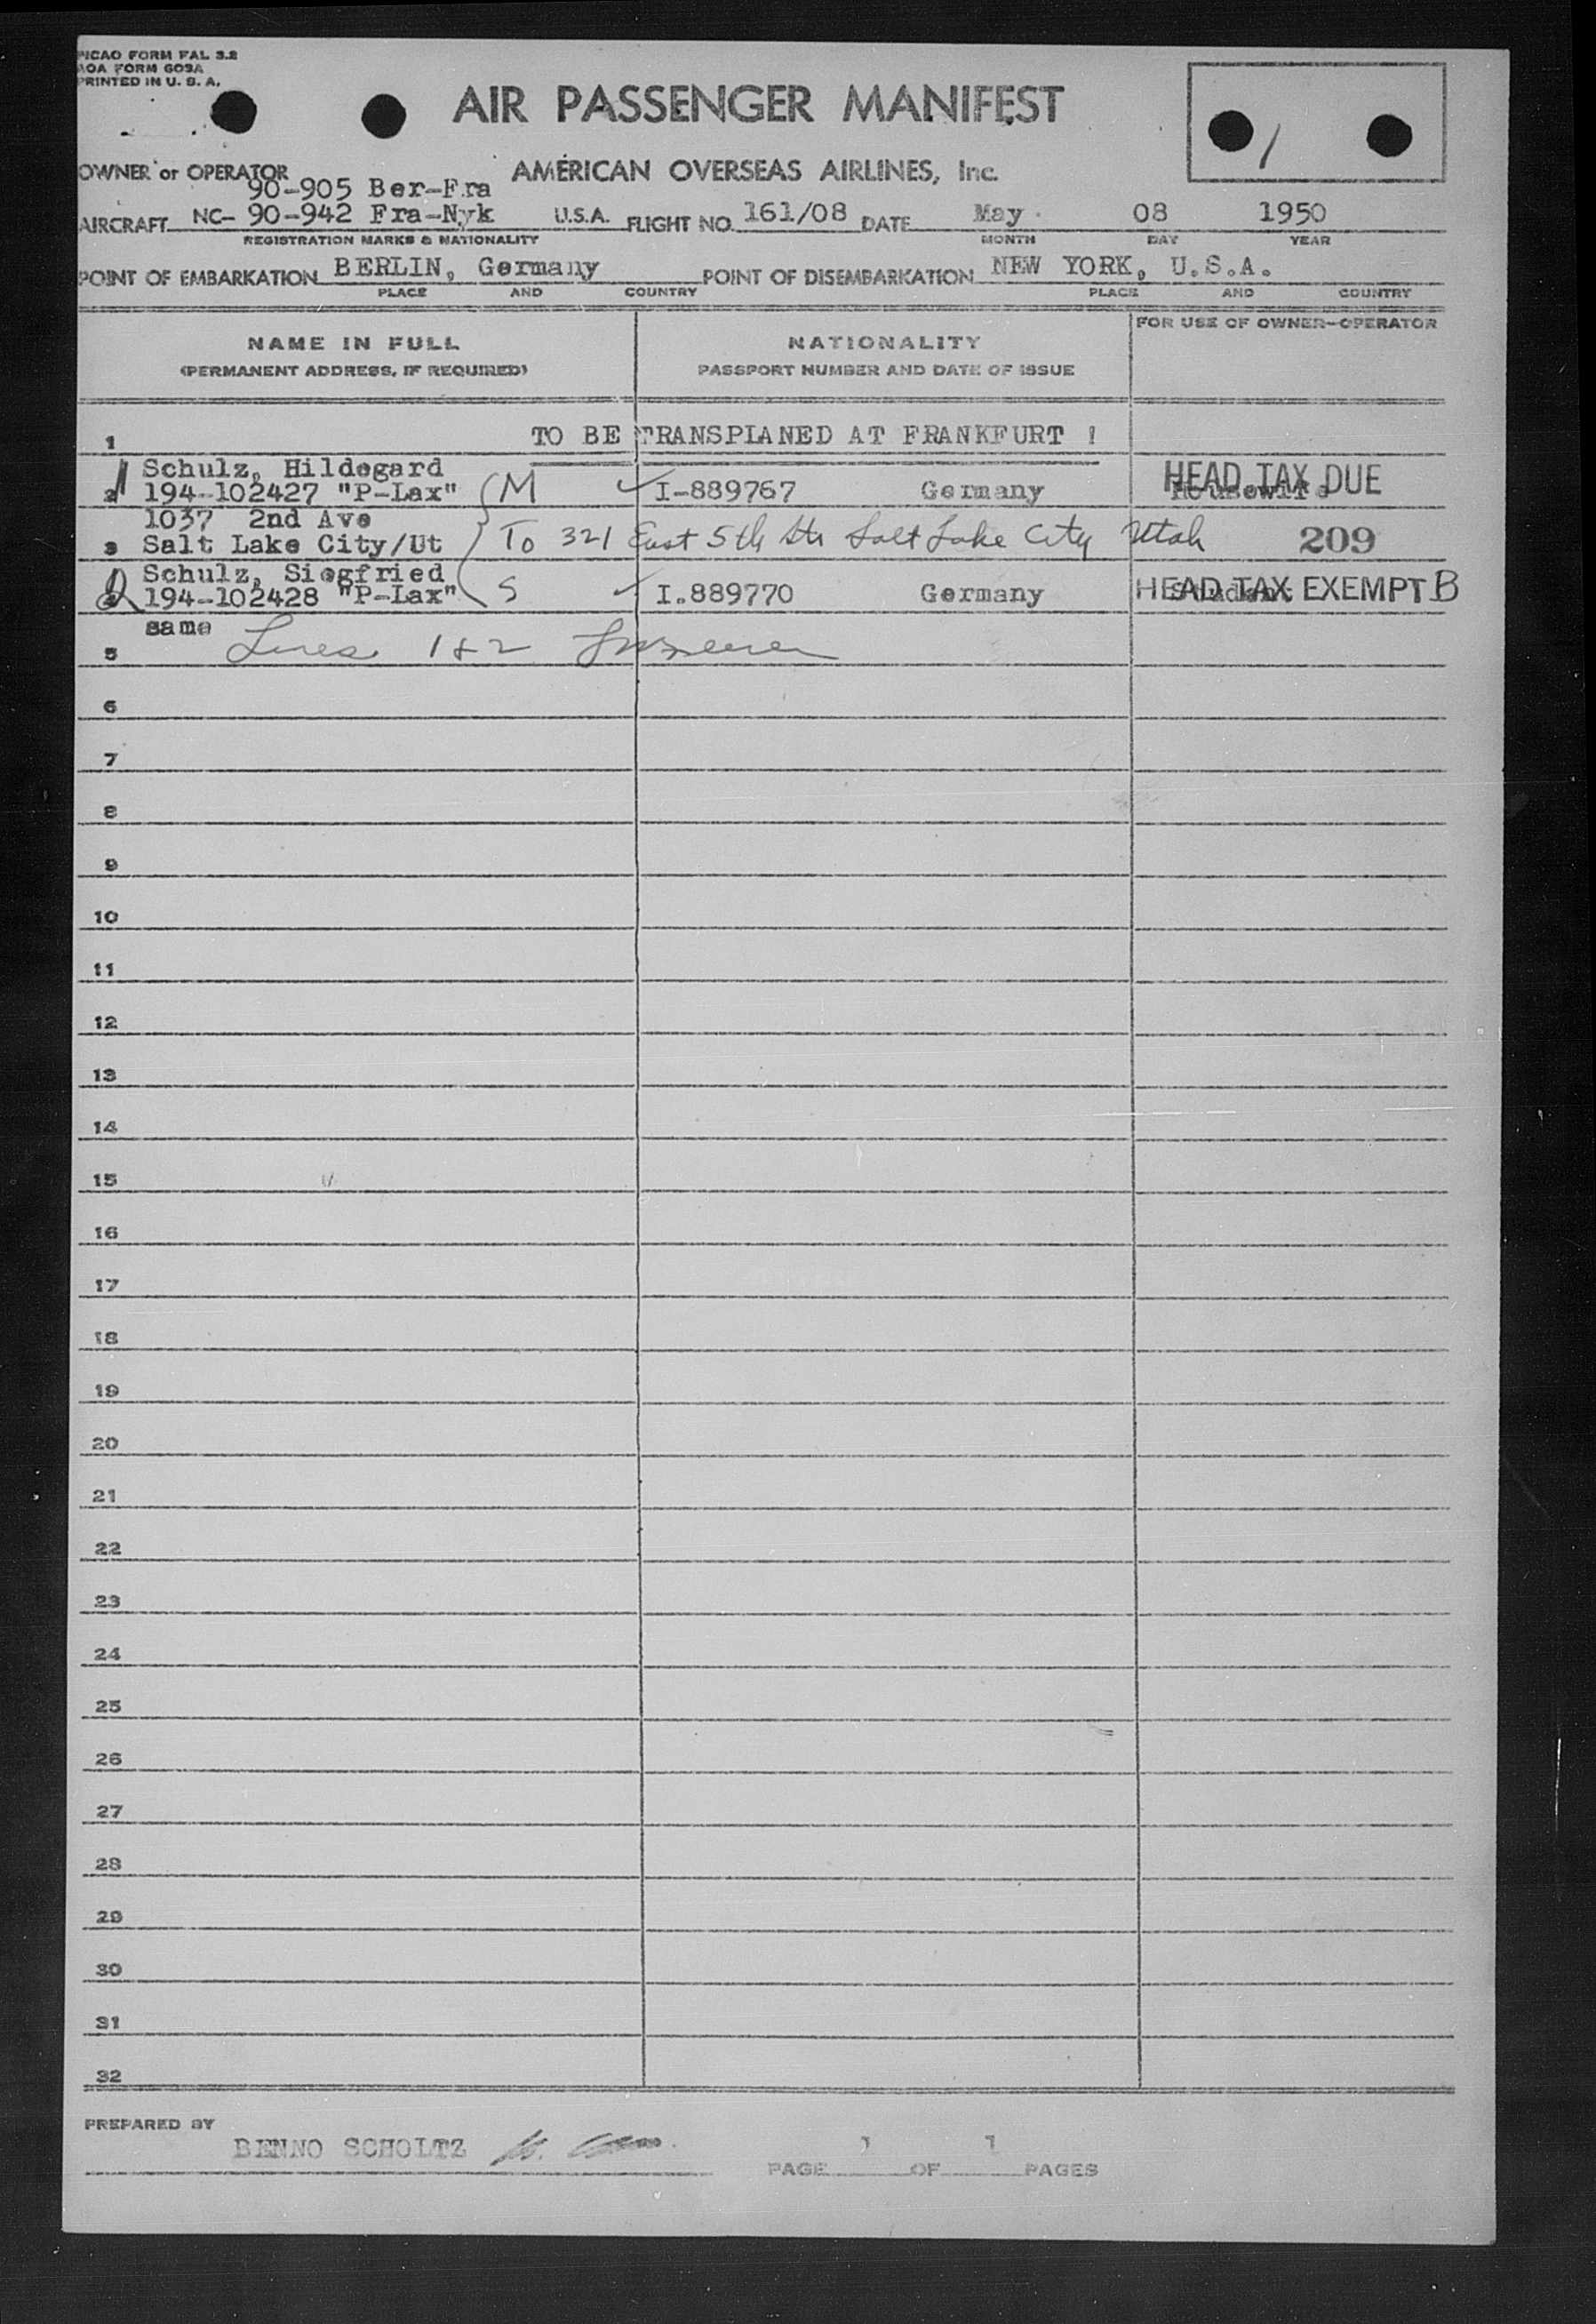 PICAO FORM FAL 3.2
AOA FORM 609A
PRINTED IN U. S. A.
AIR PASSENGER MANIFEST
1
OWNER or OPERATOR AMERICAN OVERSEAS AIRLINES, Inc.
90-905 Ber-Fra
AIRCRAFT NC- 90-942 Fra-Nyk U.S.A. FLIGHT NO. 161/08 DATE May 08 1950
REGISTRATION MARKS & NATIONALITY MONTH DAY YEAR
POINT OF EMBARKATION BERLIN, Germany POINT OF DISEMBARKATION NEW YORK, U.S.A.
PLACE AND COUNTRY PLACE AND COUNTRY
NAME IN FULL NATIONALITY FOR USE OF OWNER-OPERATOR
(PERMANENT ADDRESS, IF REQUIRED) PASSPORT NUMBER AND DATE OF ISSUE
1 TO BE TRANSPLANED AT FRANKFURT !
Schulz, Hildegard HEAD TAX DUE
1 2 194-102427 "P-Lax" M ✓ I-889767 Germany Housewife
1037 2nd Ave
3 Salt Lake City/Ut To 321 East 5th Str Salt Lake City Utah 209
Schulz, Siegfried
2 194-102428 "P-Lax" S ✓ I.889770 Germany Student HEAD TAX EXEMPT B
same
5 Lines 1&2
6
7
8
9
10
11
12
13
14
15
16
17
18
19
20
21
22
23
24
25
26
27
28
29
30
31
32
PREPARED BY
BENNO SCHOLTZ
PAGE 1 OF 1 PAGES